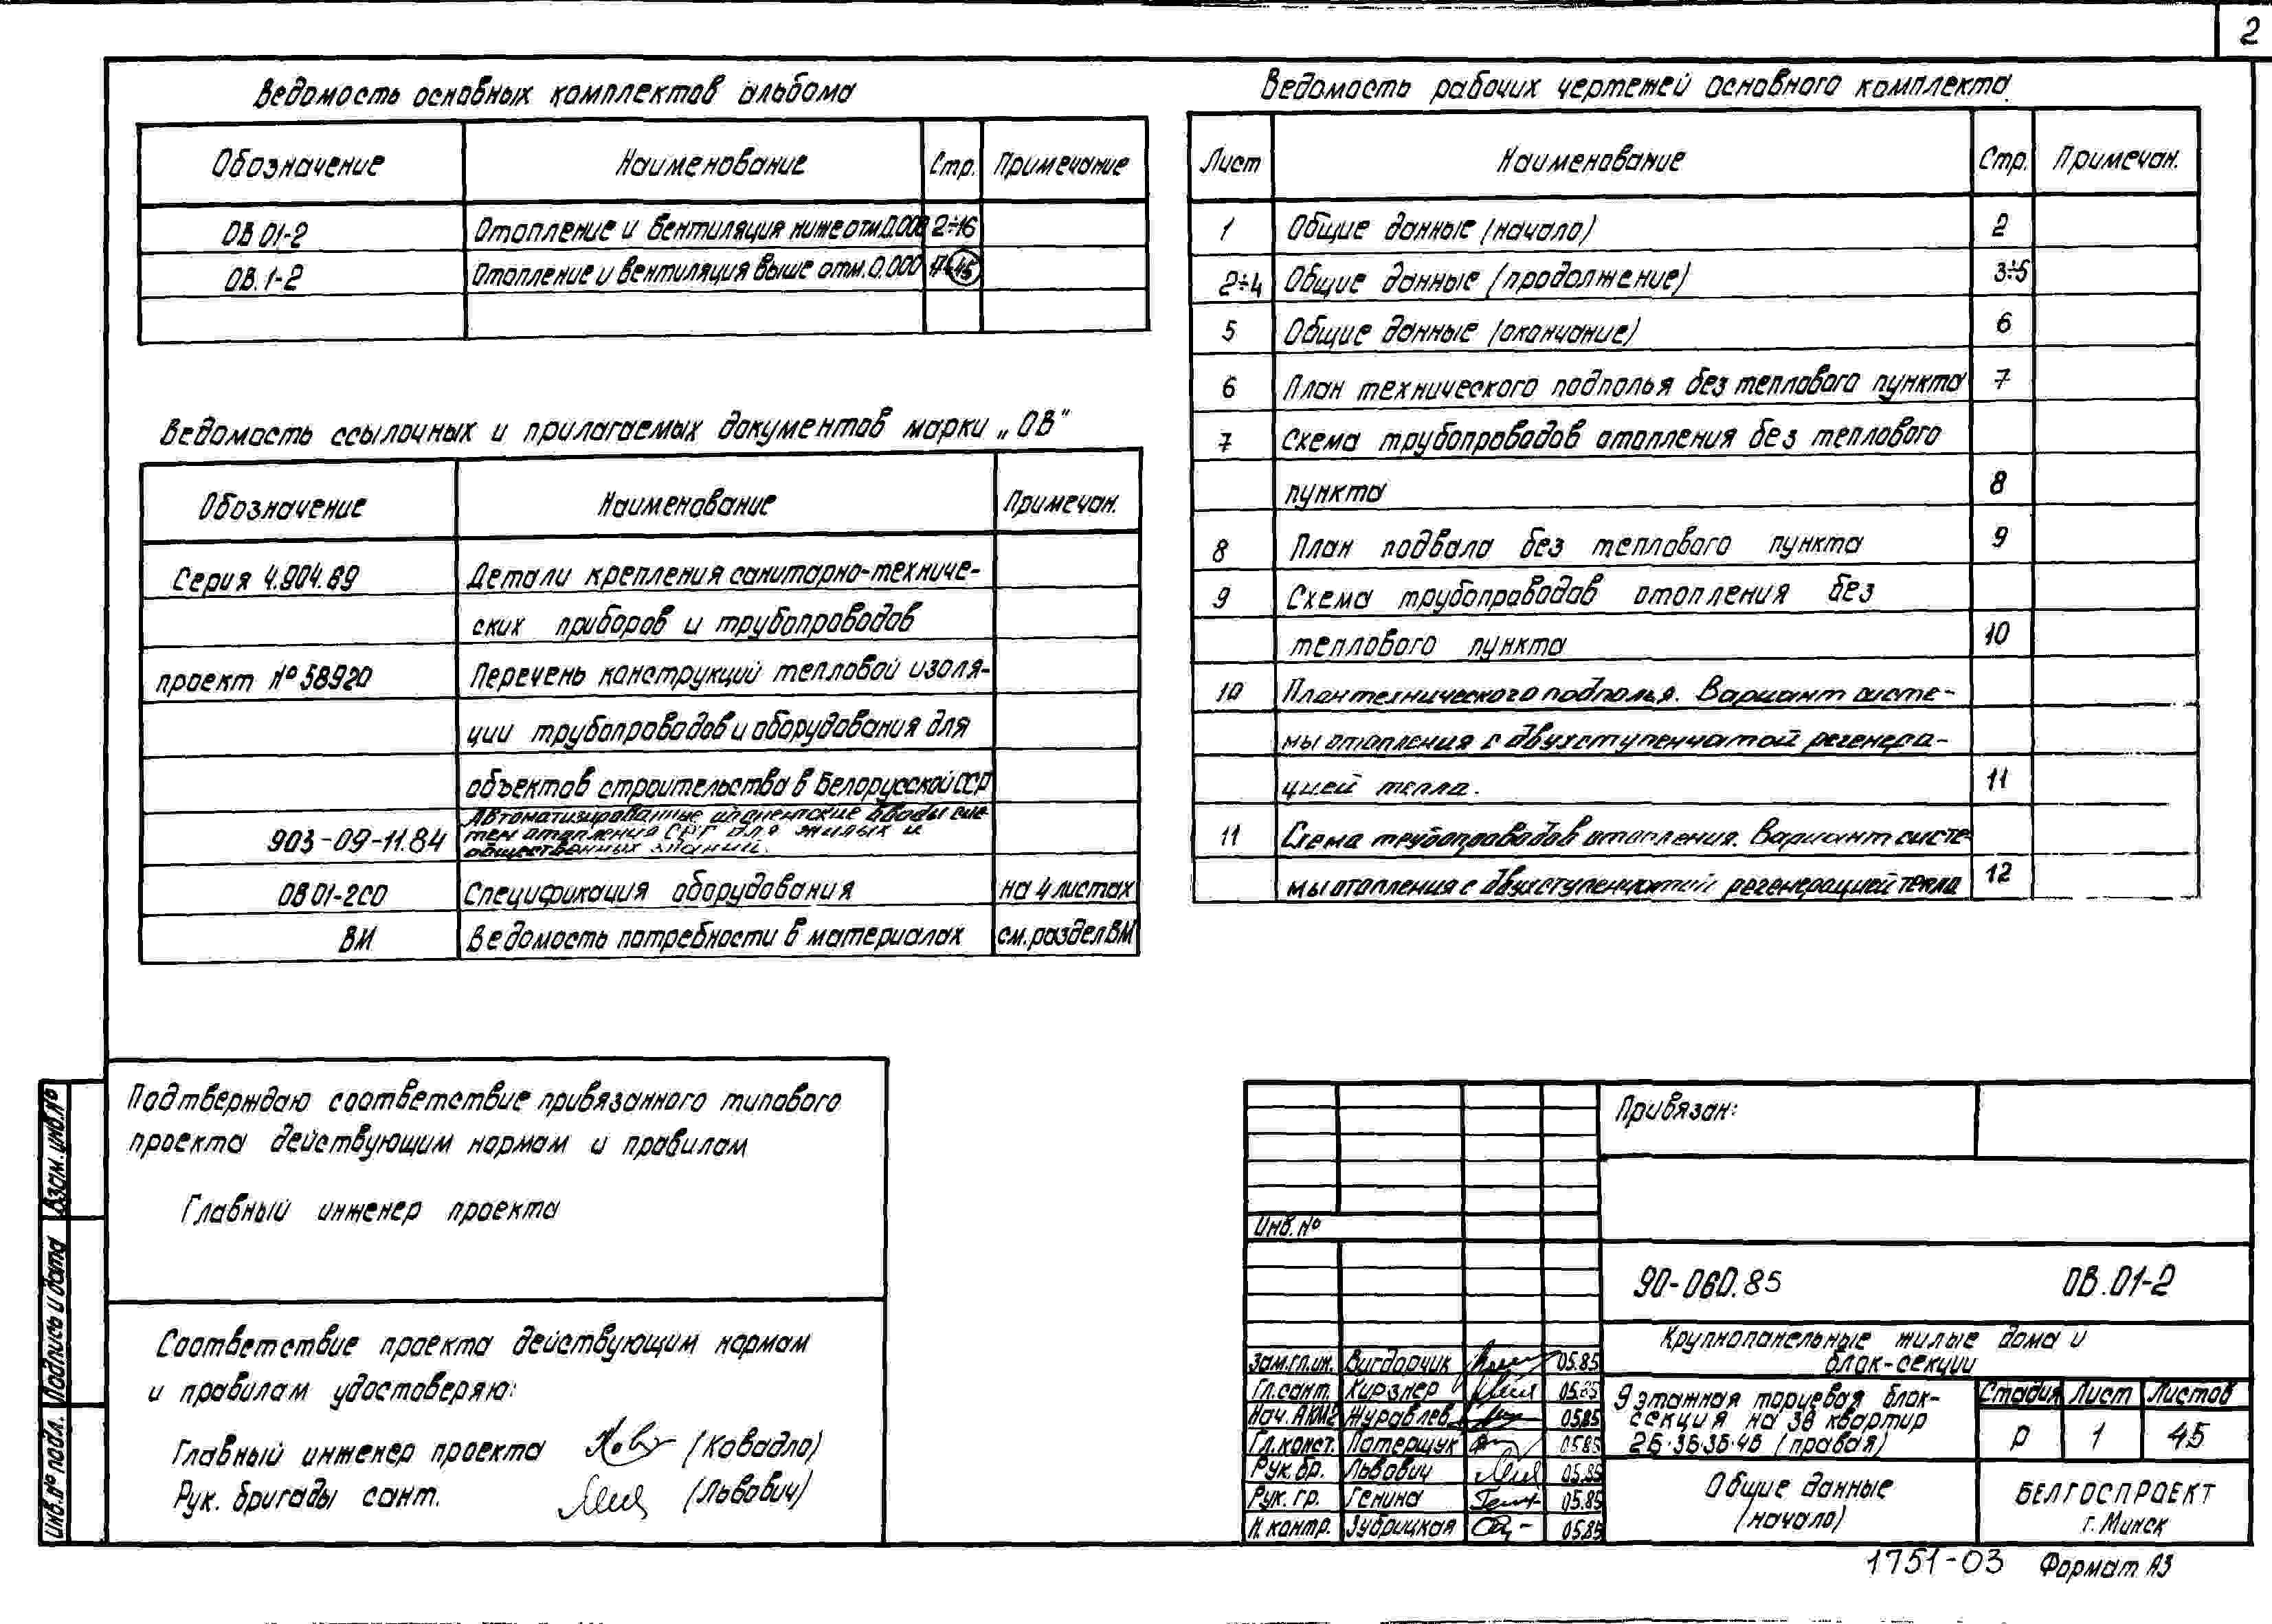 2
Ведомость основных комплектов альбома
Обозначение Наименование Стр. Примечание
ОВ 01-2 Отопление и вентиляция ниже отм.0.000 2÷16
ОВ. 1-2 Отопление и вентиляция выше отм. 0.000 17÷45
Ведомость ссылочных и прилагаемых документов марки „ОВ"
Обозначение Наименование Примечан.
Серия 4.904.69 Детали крепления санитарно-техниче-
ских приборов и трубопроводов
проект №58920 Перечень конструкций тепловой изоля-
ции трубопроводов и оборудования для
объектов строительства в Белорусской ССР
903-09-11.84 Автоматизированные абонентские вводы сис-
тем отопления СРГ для жилых и
общественных зданий.
ОВ 01-2СО Спецификация оборудования на 4 листах
ВМ Ведомость потребности в материалах см. раздел ВМ
Ведомость рабочих чертежей основного комплекта
Лист Наименование Стр. Примечан.
1 Общие данные (начало) 2
2÷4 Общие данные (продолжение) 3÷5
5 Общие данные (окончание) 6
6 План технического подполья без теплового пункта 7
7 Схема трубопроводов отопления без теплового
пункта 8
8 План подвала без теплового пункта 9
9 Схема трубопроводов отопления без
теплового пункта 10
10 План технического подполья. Вариант систе-
мы отопления с двухступенчатой регенера-
цией тепла. 11
11 Схема трубопроводов отопления. Вариант систе-
мы отопления с двухступенчатой регенерацией тепла 12
Подтверждаю соответствие привязанного типового
проекта действующим нормам и правилам
Главный инженер проекта
Соответствие проекта действующим нормам
и правилам удостоверяю:
Главный инженер проекта (Ковадло)
Рук. бригады сант. (Львович)
Взам. инв.№
Подпись и дата
Инв.№ подл.
Привязан:
Инв. №
90-060.85 ОВ.01-2
Крупнопанельные жилые дома и
блок-секции
Зам.гл.ин. Вигдорчик 05.85
Гл.сант. Кирзнер 05.85
Нач. АКМ2 Журавлев 05.85
Гл.конст. Патерщук 05.85
Рук. бр. Львович 05.85
Рук. гр. Генина 05.85
Н. контр. Зубрицкая 05.85
9 этажная торцевая блок-
секция на 36 квартир
2Б·3Б·3Б·4Б (правая)
Стадия Лист Листов
Р 1 45
Общие данные
(начало)
БЕЛГОСПРОЕКТ
г. Минск
1751-03 Формат А3